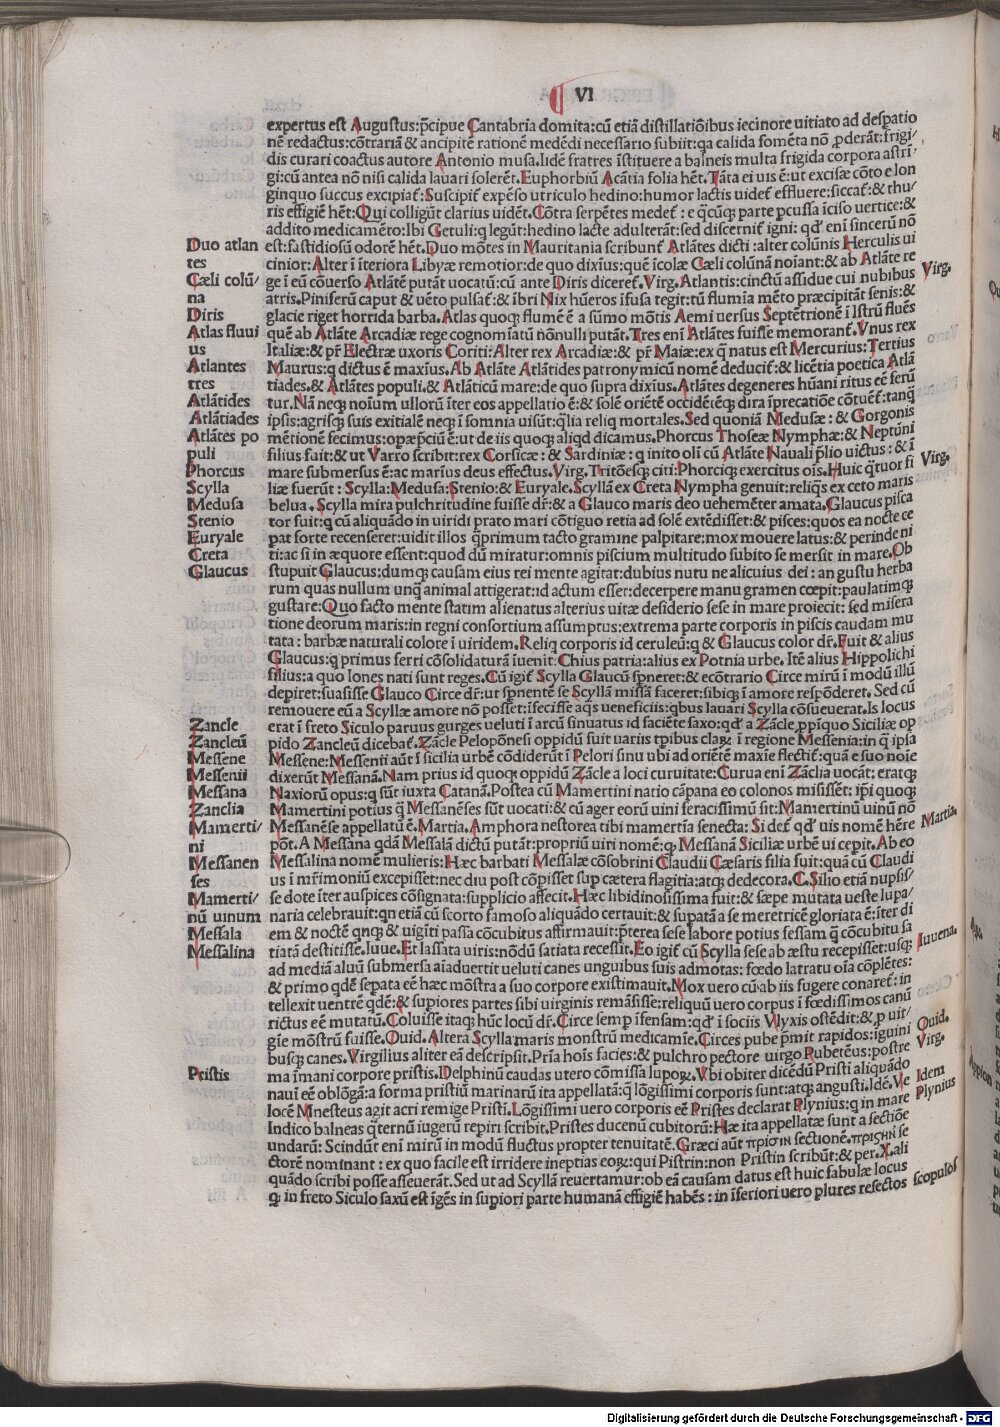 VI
expertus est Augustus:p̄cipue Cantabria domita:cū etiā distillatiōibus iecinore uitiato ad despatio
nē redactus:cōtrariā & ancipitē rationē medēdi necessario subiit:qa calida fomēta nō ꝓderāt:frigi/
dis curari coactus autore Antonio musa.Iidē fratres īstituere a balneis multa frigida corpora astri/
gi:cū antea nō nisi calida lauari solerēt.Euphorbiū Acātia folia hēt.Tāta ei uis ē:ut excisæ cōto e lon
ginquo succus excipiat᷑:Suscipit᷑ expēso utriculo hedino:humor lactis uidet᷑ effluere:siccat᷑:& thu/
ris effigiē hēt:Qui colligūt clarius uidēt.Cōtra serpētes medet᷑ : e q̄cūq; parte pcussa īciso uertice:&
addito medicamēto:Ibi Getuli:q legūt:hedino lacte adulterāt:sed discernit᷑ igni: qd᷑ enī sincerū nō
Duo atlan est:fastidiosū odorē hēt.Duo mōtes in Mauritania scribunt᷑ Atlātes dicti :alter colūnis Herculis ui
tes cinior:Alter ī īteriora Libyæ remotior:de quo dixīus:quē īcolæ Cæli colūnā noīant:& ab Atlāte re
Cæli colū/ ge ī eū cōuerso Atlātē putāt uocatū:cū ante Diris diceret᷑.Virg.Atlantis:cinctū assidue cui nubibus Virg.
na atris.Piniferū caput & uēto pulsat᷑:& ībri Nix hūeros īfusa tegit:tū flumīa mēto præcipitāt senis:&
Diris glacie riget horrida barba.Atlas quoq; flumē ē a sūmo mōtis Aemi uersus Septētrionē ī Istrū fluēs
Atlas fluui quē ab Atlāte Arcadiæ rege cognomīatū nōnulli putāt.Tres enī Atlātes fuisse memorant᷑.Vnus rex
us Italiæ:& pr̄ Electræ uxoris Coriti:Alter rex Arcadiæ:& pr̄ Maiæ:ex q̄ natus est Mercurius:Tertius
Atlantes Maurus:q dictus ē maxīus.Ab Atlāte Atlātides patronymicū nomē deducit᷑:& licētia poetica Atlā
tres tiades.& Atlātes populi.& Atlāticū mare:de quo supra dixīus.Atlātes degeneres hūani ritus eē ferū
Atlātides tur.Nā neq; noīum ullorū īter eos appellatio ē:& solē oriētē occidētēq; dira īprecatiōe cōtuēt᷑:tanq̄
Atlātiades ipsis:agrisq; suis exitialē neq; ī somnia uisūt:q̄lia reliq mortales.Sed quoniā Medusæ : & Gorgonis
Atlātes po mētionē fecimus:opæp̄ciū ē:ut de iis quoq; aliqd dicamus.Phorcus Thoseæ Nymphæ:& Neptūni
puli filius fuit:& ut Varro scribit:rex Corsicæ: & Sardiniæ: q inito oli cū Atlāte Nauali p̄lio uictus : & ī
Phorcus mare submersus ē:ac marīus deus effectus.Virg.Tritōesq; citi:Phorciq; exercitus oīs.Huic q̄tuor fi Virg.
Scylla liæ fuerūt : Scylla:Medusa:Stenio:& Euryale.Scyllā ex Creta Nympha genuit:reliq̄s ex ceto maris
Medusa belua . Scylla mira pulchritudine fuisse dr̄:& a Glauco maris deo uehemēter amata.Glaucus pisca
Stenio tor fuit:q cū aliquādo in uiridi prato mari cōtiguo retia ad solē extēdisset:& pisces:quos ea nocte ce
Euryale pat forte recenseret:uidit illos q̄primum tacto gramine palpitare:mox mouere latus:& perinde ni
Creta ti:ac si in æquore essent:quod dū miratur:omnis piscium multitudo subito se mersit in mare.Ob
Glaucus stupuit Glaucus:dumq; causam eius rei mente agitat:dubius nutu ne alicuius dei : an gustu herba
rum quas nullum unq̄ animal attigerat:id actum esset:decerpere manu gramen cœpit:paulatimq;
gustare:Quo facto mente statim alienatus alterius uitæ desiderio sese in mare proiecit: sed misera
tione deorum maris:in regni consortium assumptus:extrema parte corporis in piscis caudam mu
tata : barbæ naturali colore ī uiridem.Reliq̄ corporis id ceruleū:q & Glaucus color dr̄.Fuit & alius
Glaucus:q primus ferri cōsolidaturā īuenit:Chius patria:alius ex Potnia urbe. Itē alius Hippolichi
filius:a quo Iones nati sunt reges.Cū igit᷑ Scylla Glaucū spneret:& ecōtrario Circe mirū ī modū illū
depiret:suasisse Glauco Circe dr̄:ut spnentē se Scyllā missā faceret:sibiq; ī amore respōderet. Sed cū
remouere eū a Scyllæ amore nō posset:īfecisse aq̄s ueneficiis:qbus lauari Scylla cōsueuerat.Is locus
Zancle erat ī freto Siculo paruus gurges ueluti ī arcū sinuatus id faciēte saxo:qd᷑ a Zācle ppīquo Siciliæ op
Zancleū pido Zancleū dicebat᷑.Zācle Peloponēsi oppidū fuit uariis tpibus claꝝ ī regione Messenia:in q̄ ipsa
Messene Messene:Messenii aūt ī sicilia urbē cōdiderūt ī Pelori sinu ubi ad oriētē maxie flectit᷑:quā e suo noie
Messenii dixerūt Messanā.Nam prius id quoq; oppidū Zācle a loci curuitate:Curua enī Zāclia uocāt: eratq;
Messana Naxiorū opus:q sūt iuxta Catanā.Postea cū Mamertini natio cāpana eo colonos misissēt: ipi quoq;
Zanclia Mamertini potius q̄ Messanēses sūt uocati:& cū ager eorū uini feracissimū sit:Mamertinū uinū nō
Mamerti/ Messanēse appellatū ē.Martia.Amphora nestorea tibi mamertīa senecta: Si det᷑ qd᷑ uis nomē hēre Martia.
ni pōt.A Messana qdā Messalā dictū putāt:propriū uiri nomē:q Messanā Siciliæ urbē ui cepit.Ab eo
Messanen Messalina nomē mulieris:Hæc barbati Messalæ cōsobrini Claudii Cæsaris filia fuit:quā cū Claudi
ses us ī mr̄imoniū excepisset:nec diu post cōpisset sup cætera flagitia:atq; dedecora.C.Silio etiā nupsis/
Mamerti/ se dote iter auspices cōsignata:supplicio affecit.Hæc libidinosissima fuit:& sæpe mutata ueste lupa/
nū uinum naria celebrauit:qn etiā cū scorto famoso aliquādo certauit:& supatā a se meretricē gloriata ē:iter di
Messala em & noctē qnq; & uigīti passa cōcubitus affirmauit:p̄terea sese labore potius fessam q̄ cōcubitu sa
Messalina tiatā destitisse.Iuue.Et lassata uiris:nōdū satiata recessit.Eo igit᷑ cū Scylla sese ab æstu recepisset:usq; Iuuena.
ad mediā aluū submersa aīaduertit ueluti canes unguibus suis admotas: fœdo latratu oīa cōplētes:
& primo qdē sepata eē hæc mōstra a suo corpore existimauit.Mox uero cū ab iis fugere conaret᷑: in
tellexit uentrē qdē:& supiores partes sibi uirginis remāsisse:reliquū uero corpus ī fœdissimos canū
rictus eē mutatū.Coluisse itaq; hūc locū dr̄.Circe semp īfensam:qd᷑ ī sociis Vlyxis ostēdit:& p uir/
gie mōstrū fuisse.Ouid.Altera Scylla maris monstrū medicamīe.Circes pube p̄mit rapidos:iguini Ouid.
busq; canes.Virgilius aliter eā descripsit.Prīa hoīs facies:& pulchro pectore uirgo Pubetēus:postre Virg.
Pristis ma īmani corpore pristis.Delphinū caudas utero cōmissa lupoꝝ.Vbi obiter dicēdū Pristi aliquādo
nauī eē oblōgā:a forma pristiū marinarū ita appellatā:q̄ lōgissimi corporis sunt:atq; angusti.Idē.Ve Idem
locē Mnesteus agit acri remige Pristi.Lōgissimi uero corporis eē Pristes declarat Plynius:q in mare Plynius
Indico balneas q̄ternū iugerū repiri scribit.Pristes ducenū cubitorū:Hæ ita appellatæ sunt a sectiōe
undarū: Scindūt enī mirū in modū fluctus propter tenuitatē.Græci aūt πρισιν sectionē.πρισην se
ctorē nominant : ex quo facile est irridere ineptias eoꝝ:qui Pistrin:non Pristin scribūt:& per.X.ali
quādo scribi posse asseuerāt.Sed ut ad Scyllā reuertamur:ob eā causam datus est huic fabulæ locus
q; in freto Siculo saxū est īgēs in supiori parte humanā effigiē habēs : in īferiori uero plures resectos scopulos
Digitalisierung gefördert durch die Deutsche Forschungsgemeinschaft - DFG